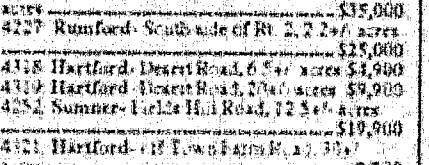 acres $35,000
4227 Rumford- South side of Rt. 2, 2.2+/- acres
$25,000
4318 Hartford- Desert Road, 6.5+/- acres $4,900
4319 Hartford- Desert Road, 20+/- acres $9,900
4252 Sumner- Hill Road, 12.5+/- acres
$19,900
4321 Hartford- Off Town Farm Road,